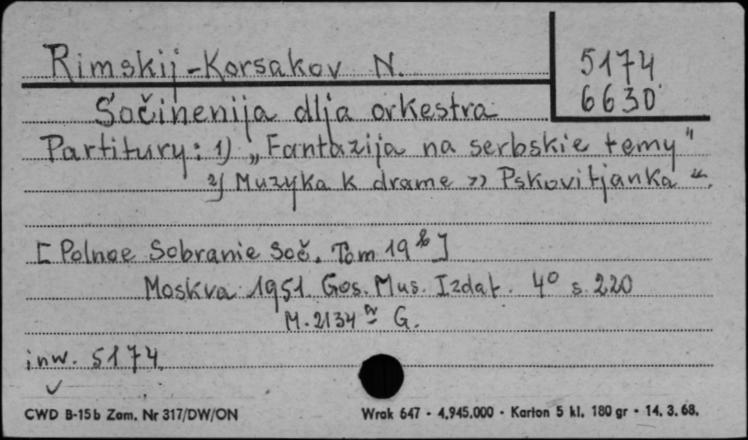 Rimskij-Korsakov N.
5174
6630
Sočinenija dlja orkestra
Partitury: 1) „Fantazija na serbskie temy"
2) Muzyka k drame » Pskovitjanka ".
[ Polnoe Sobranie Soč. Tom 19 b ]
Moskva 1951 Gos. Mus. Izdat. 4° s. 220
M. 2134 G.
inw. 5174
CWD B-15b Zam. Nr 317/DW/ON
Wrak 647 - 4.945.000 - Karton 5 kl. 180 gr - 14. 3. 68.